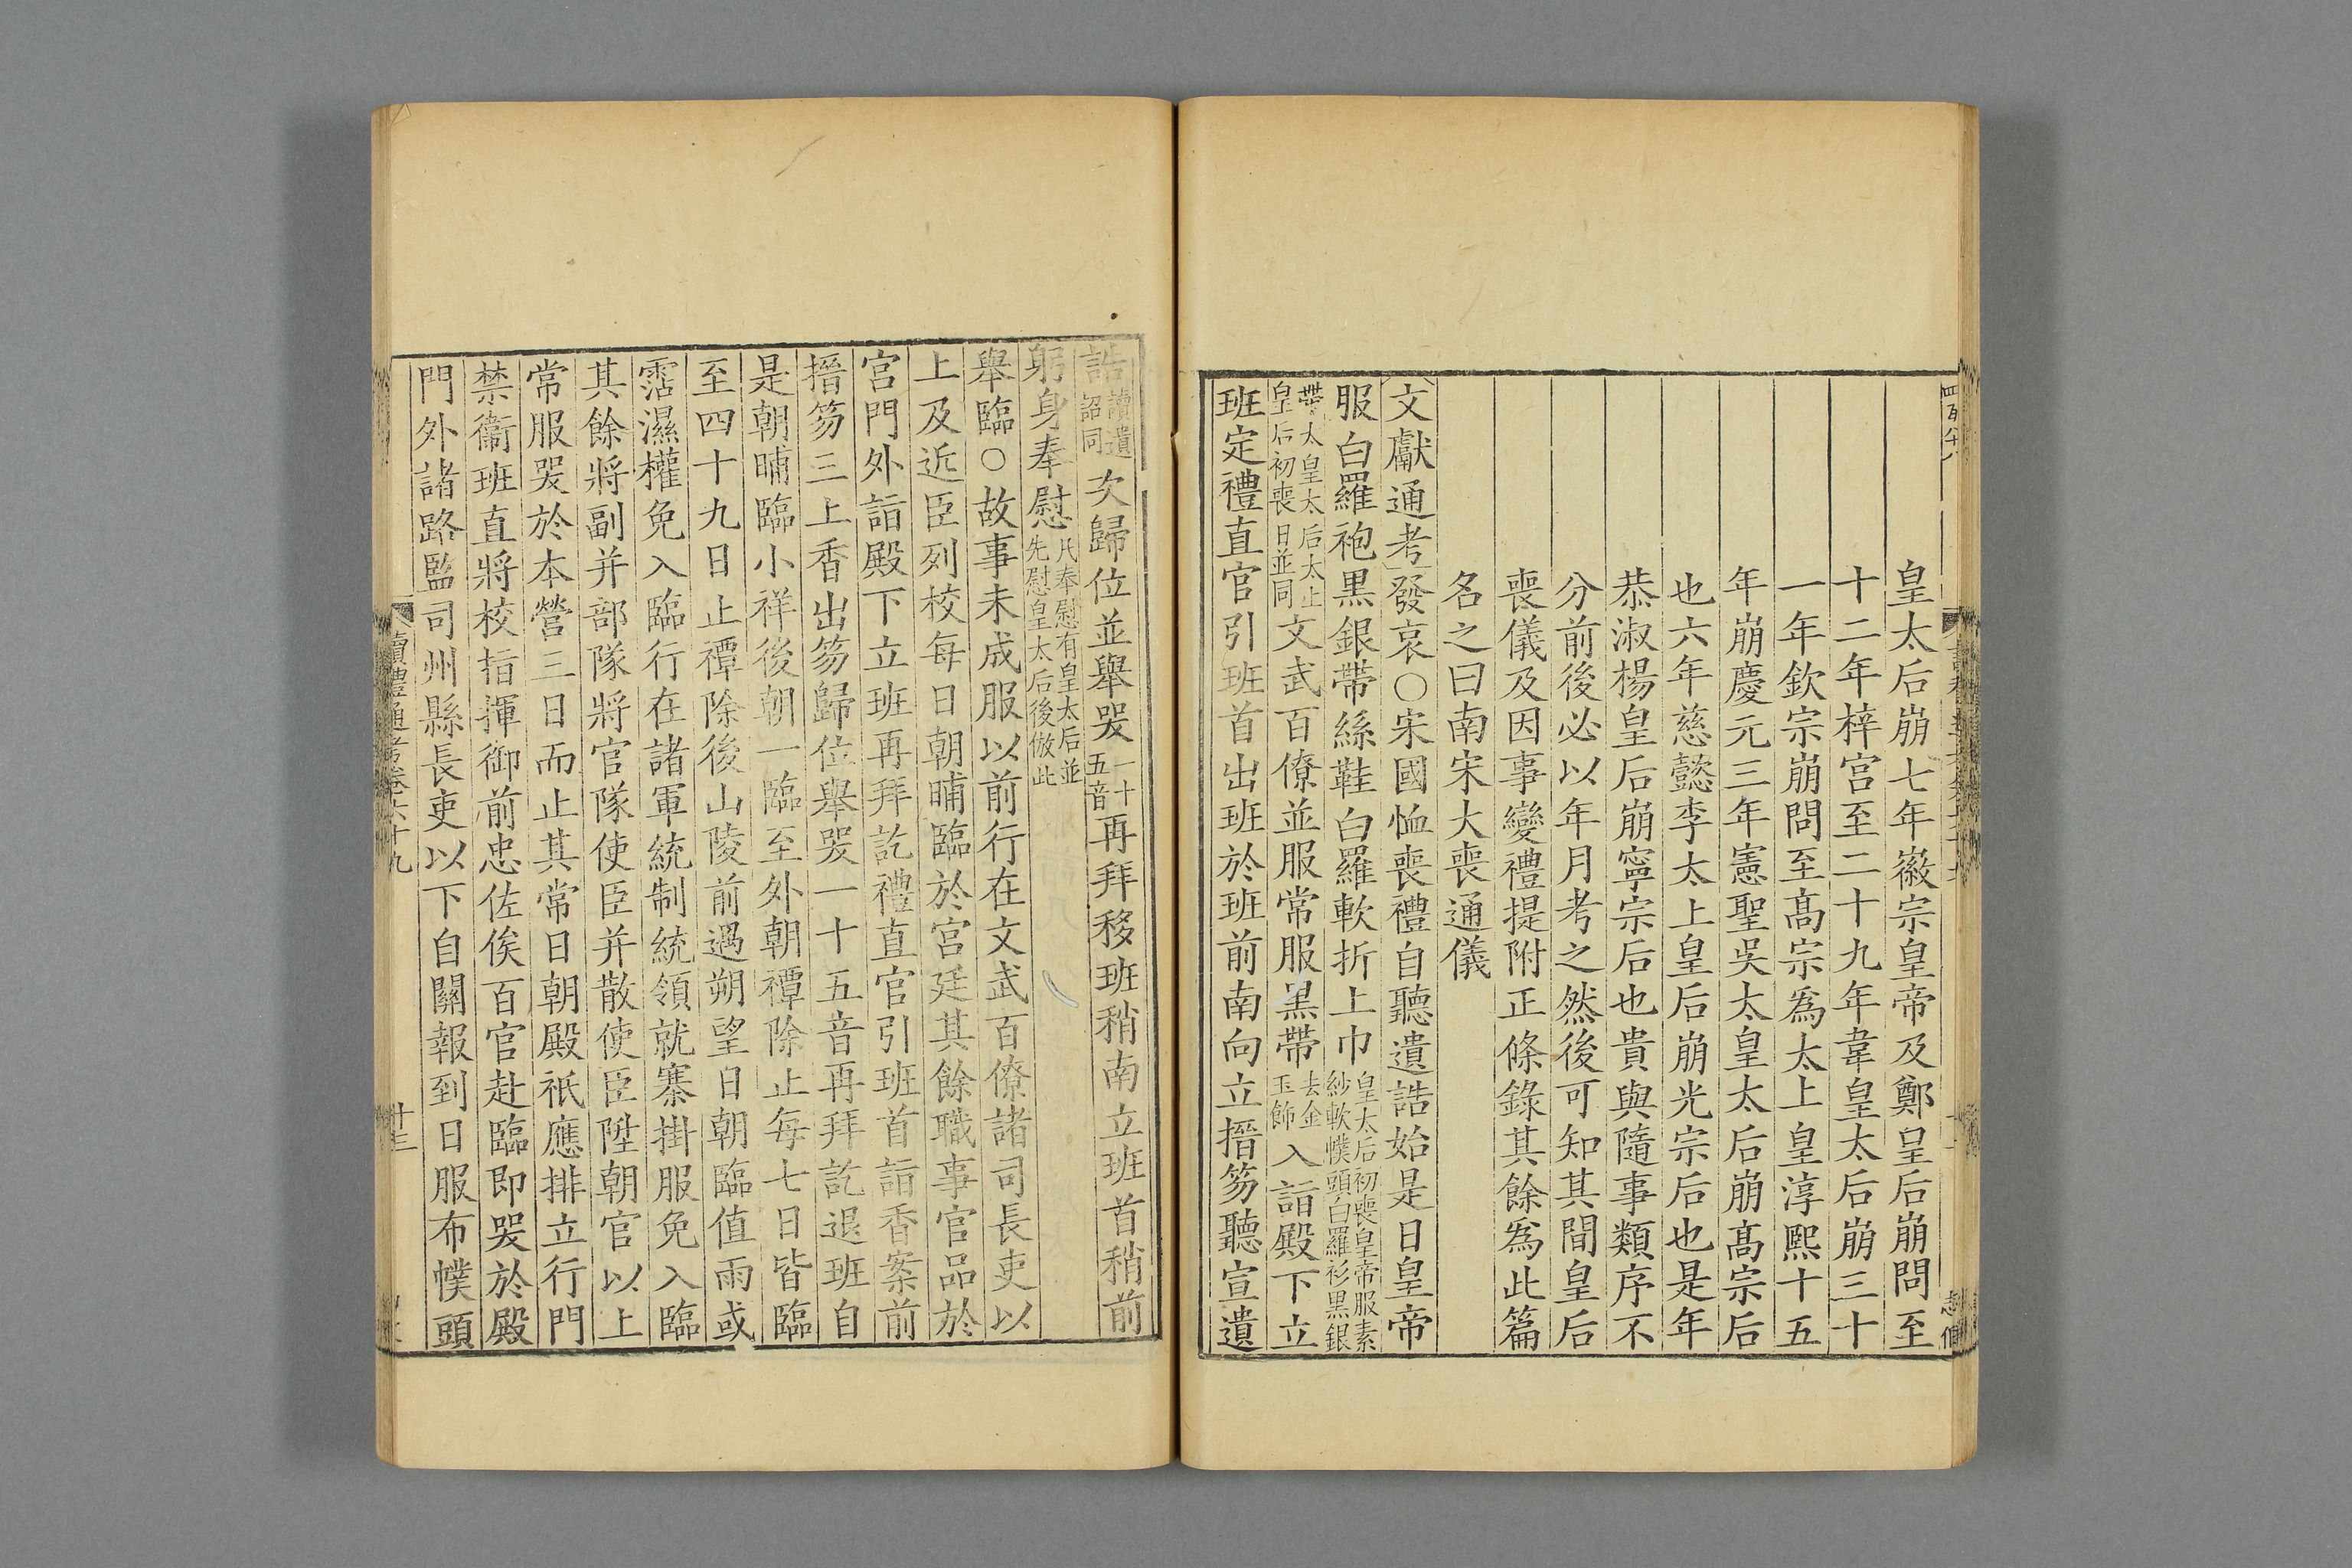 皇太后崩七年徽宗皇帝及鄭皇后崩問至
十二年梓宮至二十九年韋皇太后崩三十
一年欽宗崩問至髙宗爲太上皇淳熙十五
年崩慶元三年憲聖吳太皇太后崩髙宗后
也六年慈懿李太上皇后崩光宗后也是年
恭淑楊皇后崩寧宗后也貴與隨事類序不
分前後必以年月考之然後可知其間皇后
喪儀及因事變禮提附正條錄其餘爲此篇
名之曰南宋大喪通儀
文獻通考發哀○宋國恤喪禮自聽遺誥始是日皇帝
服白羅袍黒銀帶絲鞋白羅軟折上巾皇太后初喪皇帝服素紗軟幞頭白羅衫黒銀
帶太皇太后太上皇后初喪日並同文武百僚並服常服黒帶去金玉飾入詣殿下立
班定禮直官引班首出班於班前南向立搢笏聽宣遺
誥讀遺詔同次歸位並舉哭一十五音再拜移班稍南立班首稍前
躬身奉慰凡奉慰有皇太后並先慰皇太后後倣此
舉臨○故事未成服以前行在文武百僚諸司長吏以
上及近臣列校每日朝晡臨於宫廷其餘職事官品於
宫門外詣殿下立班再拜訖禮直官引班首詣香案前
搢笏三上香出笏歸位舉哭一十五音再拜訖退班自
是朝晡臨小祥後朝一臨至外朝禫除止每七日皆臨
至四十九日止禫除後山陵前遇朔望日朝臨值雨或
霑濕權免入臨行在諸軍統制統領就寨掛服免入臨
其餘將副并部隊將官隊使臣并散使臣陞朝官以上
常服哭於本營三日而止其常日朝殿祇應排立行門
禁衞班直將校指揮御前忠佐俟百官赴臨即哭於殿
門外諸路監司州縣長吏以下自關報到日服布幞頭
讀禮通考卷六十九
十三